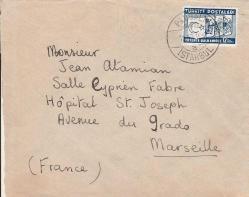 TÜRKİYE POSTALARI
İSTANBUL
Monsieur
Jean Atamian
Salle Cyprien Fabre
Hôpital St. Joseph
Avenue du Grado
Marseille
(France)